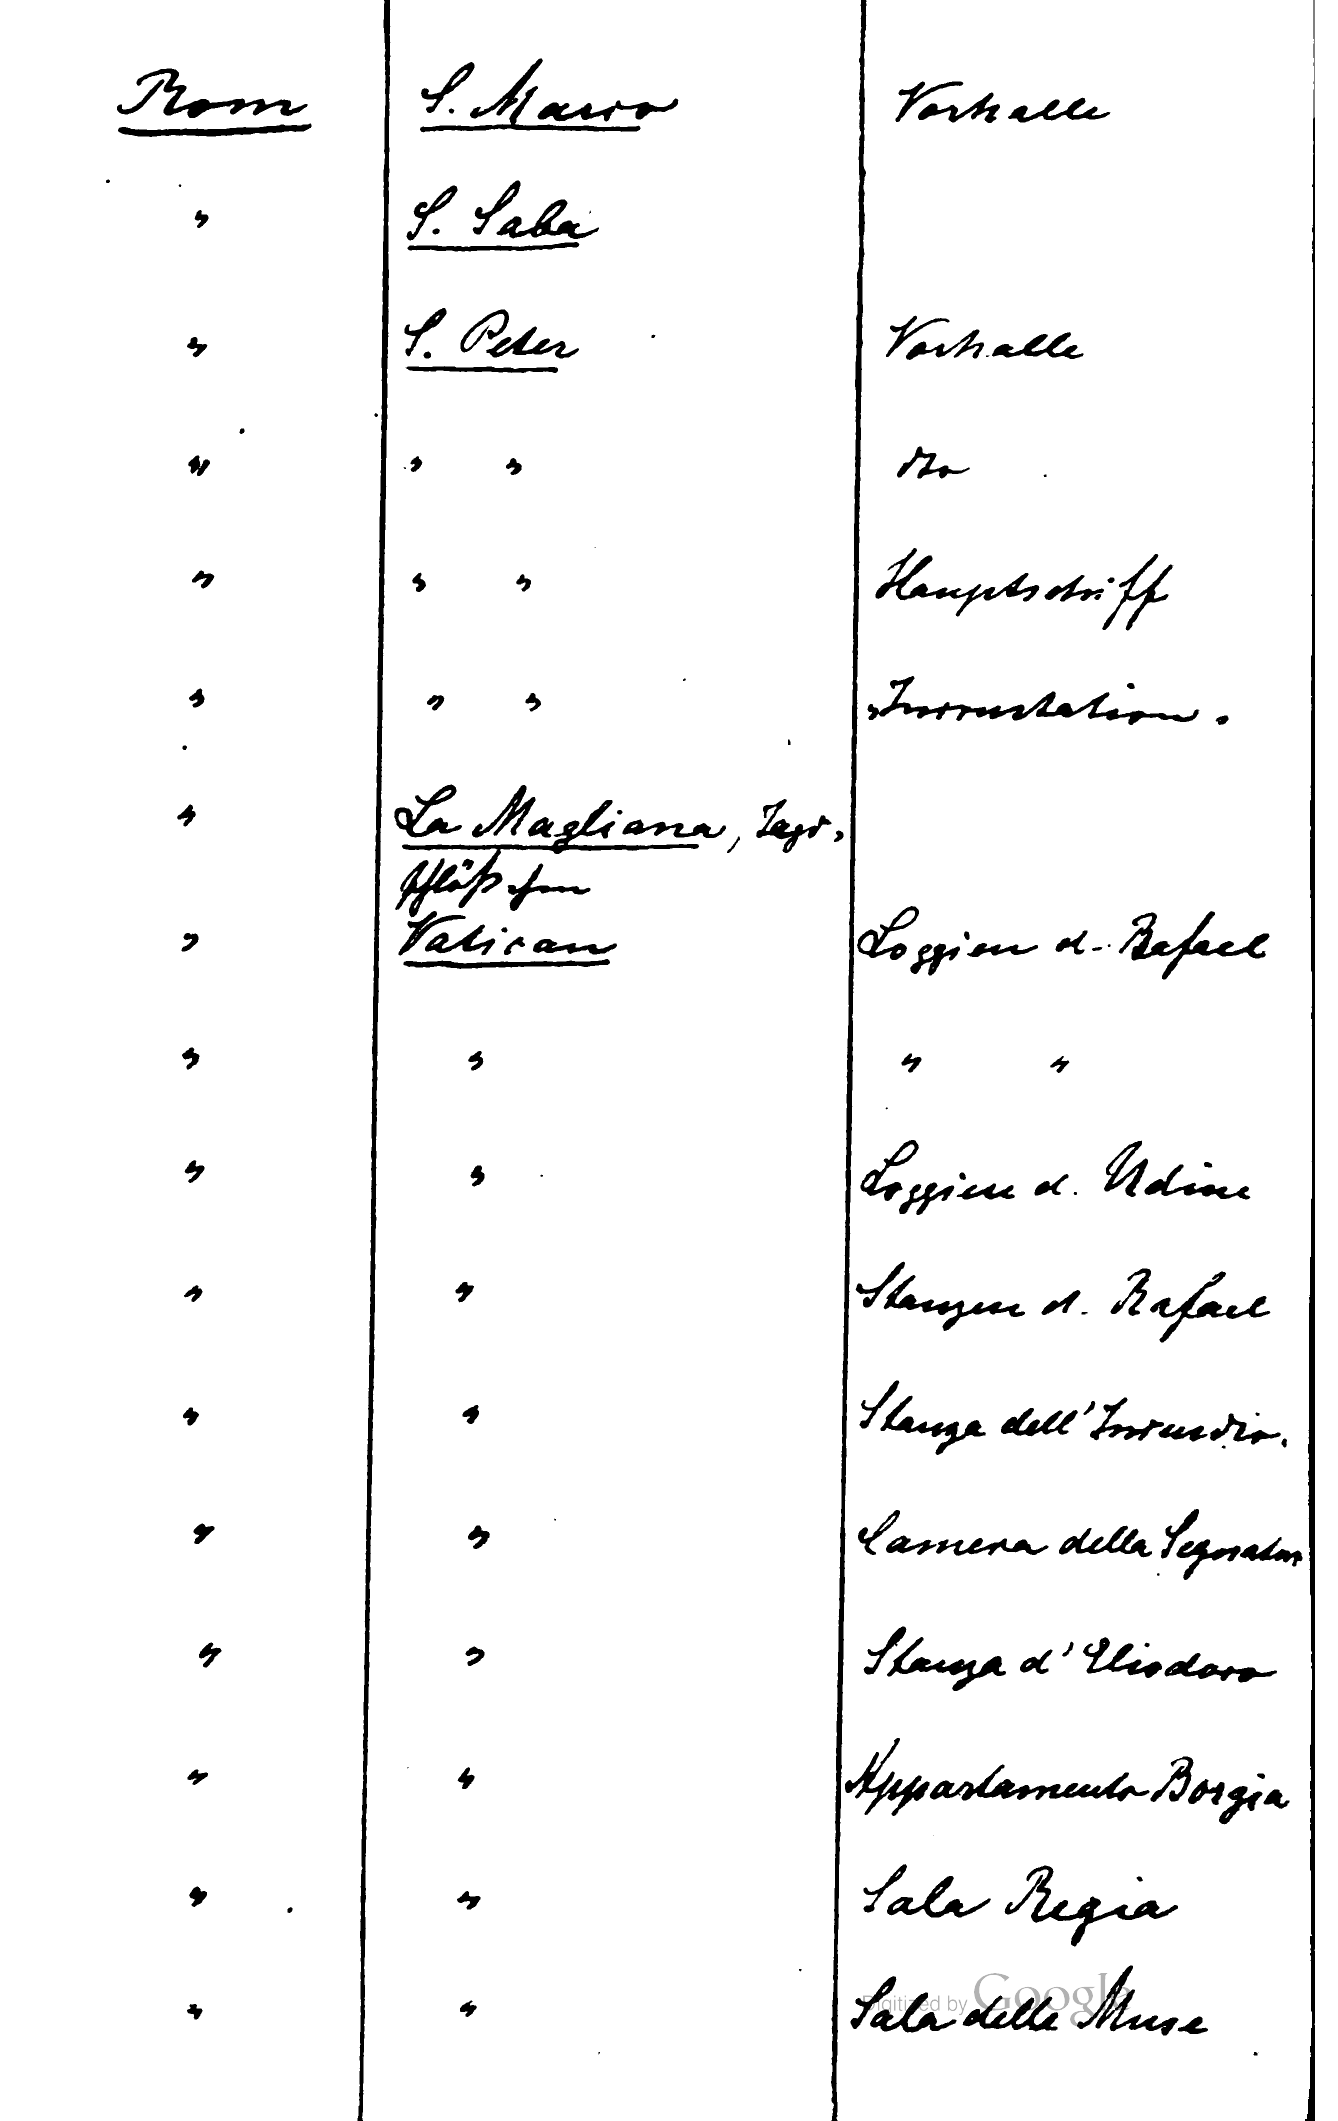 Rom S. Marco Vorhalle
" S. Saba
" S. Peter Vorhalle
" " " dto
" " " Hauptschiff
" " " Incrustation.
" La Magliana, Jagd-
schlößchen
" Vatican Loggien d. Rafael
" " " "
" " Loggien d. Udine
" " Stanzen d. Rafael
" " Stanza dell'Incendio.
" " Camera della Segnatur
" " Stanza d'Eliodoro
" " Appartamento Borgia
" " Sala Regia
" " Sala delle Muse
Digitized by Google